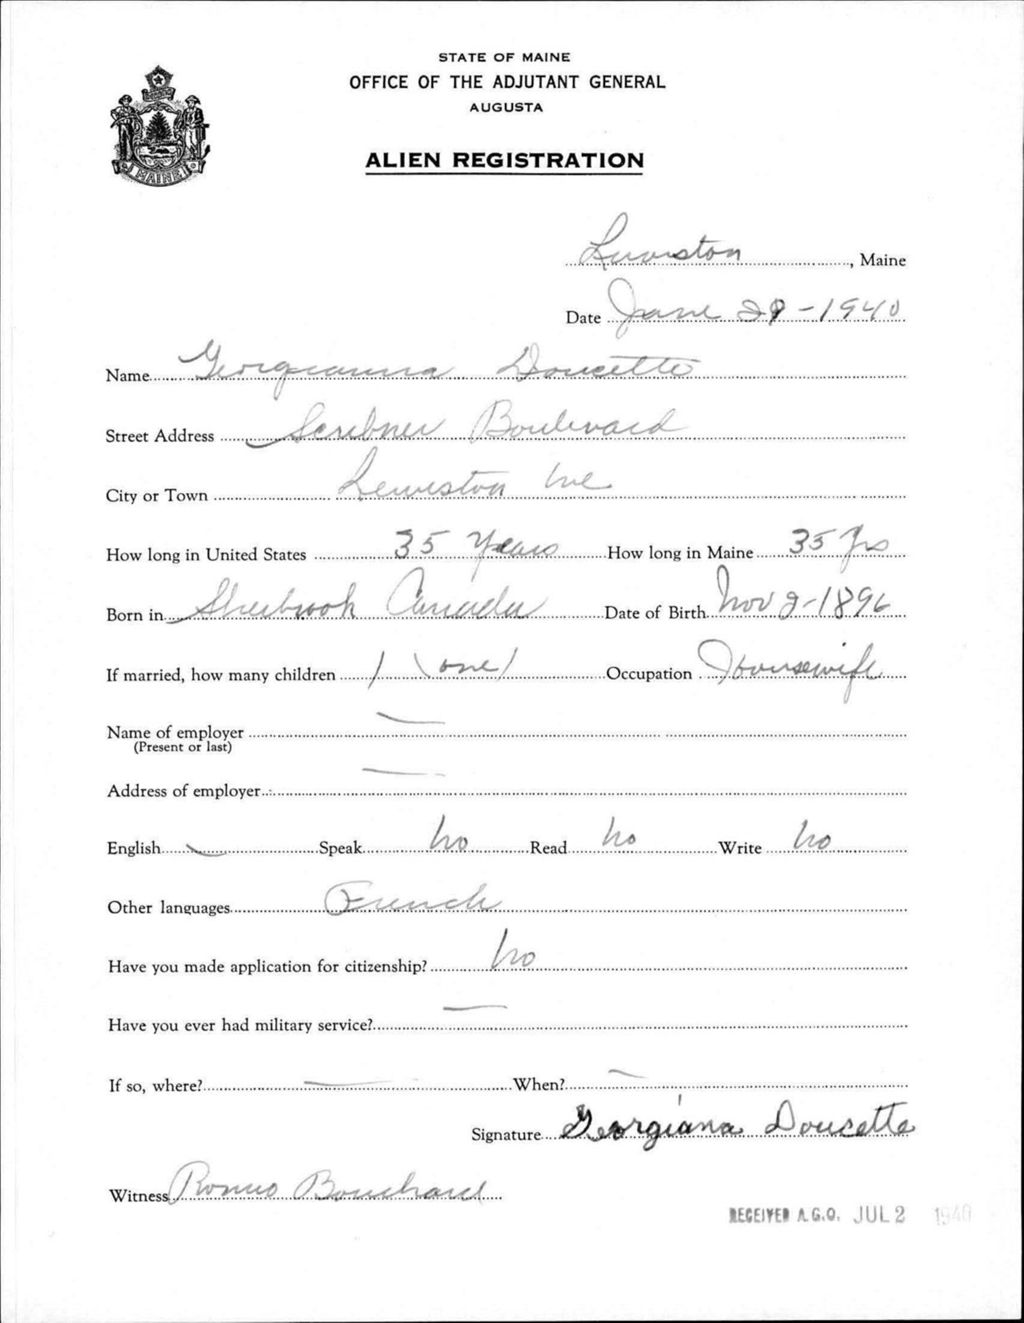 STATE OF MAINE
OFFICE OF THE ADJUTANT GENERAL
AUGUSTA
ALIEN REGISTRATION
MAINE
Lewiston, Maine
Date June 29-1940
Name Georgianna Doucette
Street Address Scribner Boulevard
City or Town Lewiston Me
How long in United States 35 Years How long in Maine 35 Yrs
Born in Sherbrook Canada Date of Birth Nov 2-1896
If married, how many children 1 (one) Occupation Housewife
Name of employer —
(Present or last)
Address of employer —
English — Speak no Read no Write no
Other languages French
Have you made application for citizenship? no
Have you ever had military service? —
If so, where? — When? —
Signature Georgiana Doucette
Witness Romeo Bouchard
RECEIVED A.G.O. JUL 2 1940